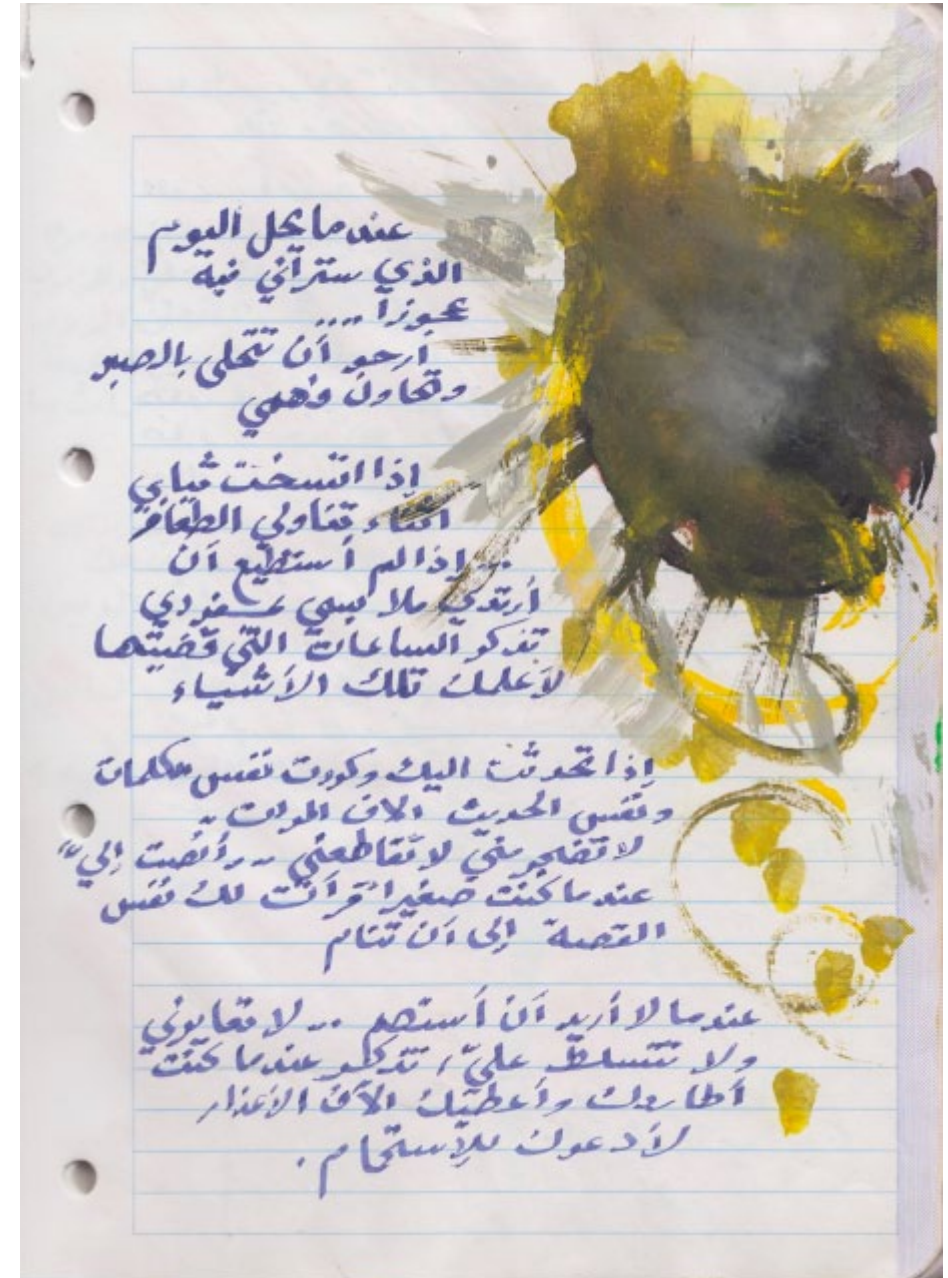 عندما يحل اليوم
الذي ستراني فيه
عجوزاً ....
أرجو أن تتحلى بالصبر
وتحاول فهمي
اذا اتسخت ثيابي
اثناء تناولي الطعام
.. إذا لم أستطيع أن
أرتدي ملابسي بمفردي
تذكر الساعات التي قضيتها
لأعلمك تلك الأشياء
إذا تحدثت اليك وكررت نفس الكلمات
ونفس الحديث الاف المرات ..
لا تضجر مني لا تقاطعني .. أنصت إليّ
عندما كنت صغيراً قرأت لك نفس
القصة إلى أن تنام
عندما لا أريد أن أستحم .. لا تعايرني
ولا تتسلط عليّ، تذكر عندما كنت
أطاردك وأعطيك الآف الأعذار
لأدعوك للإستحمام .